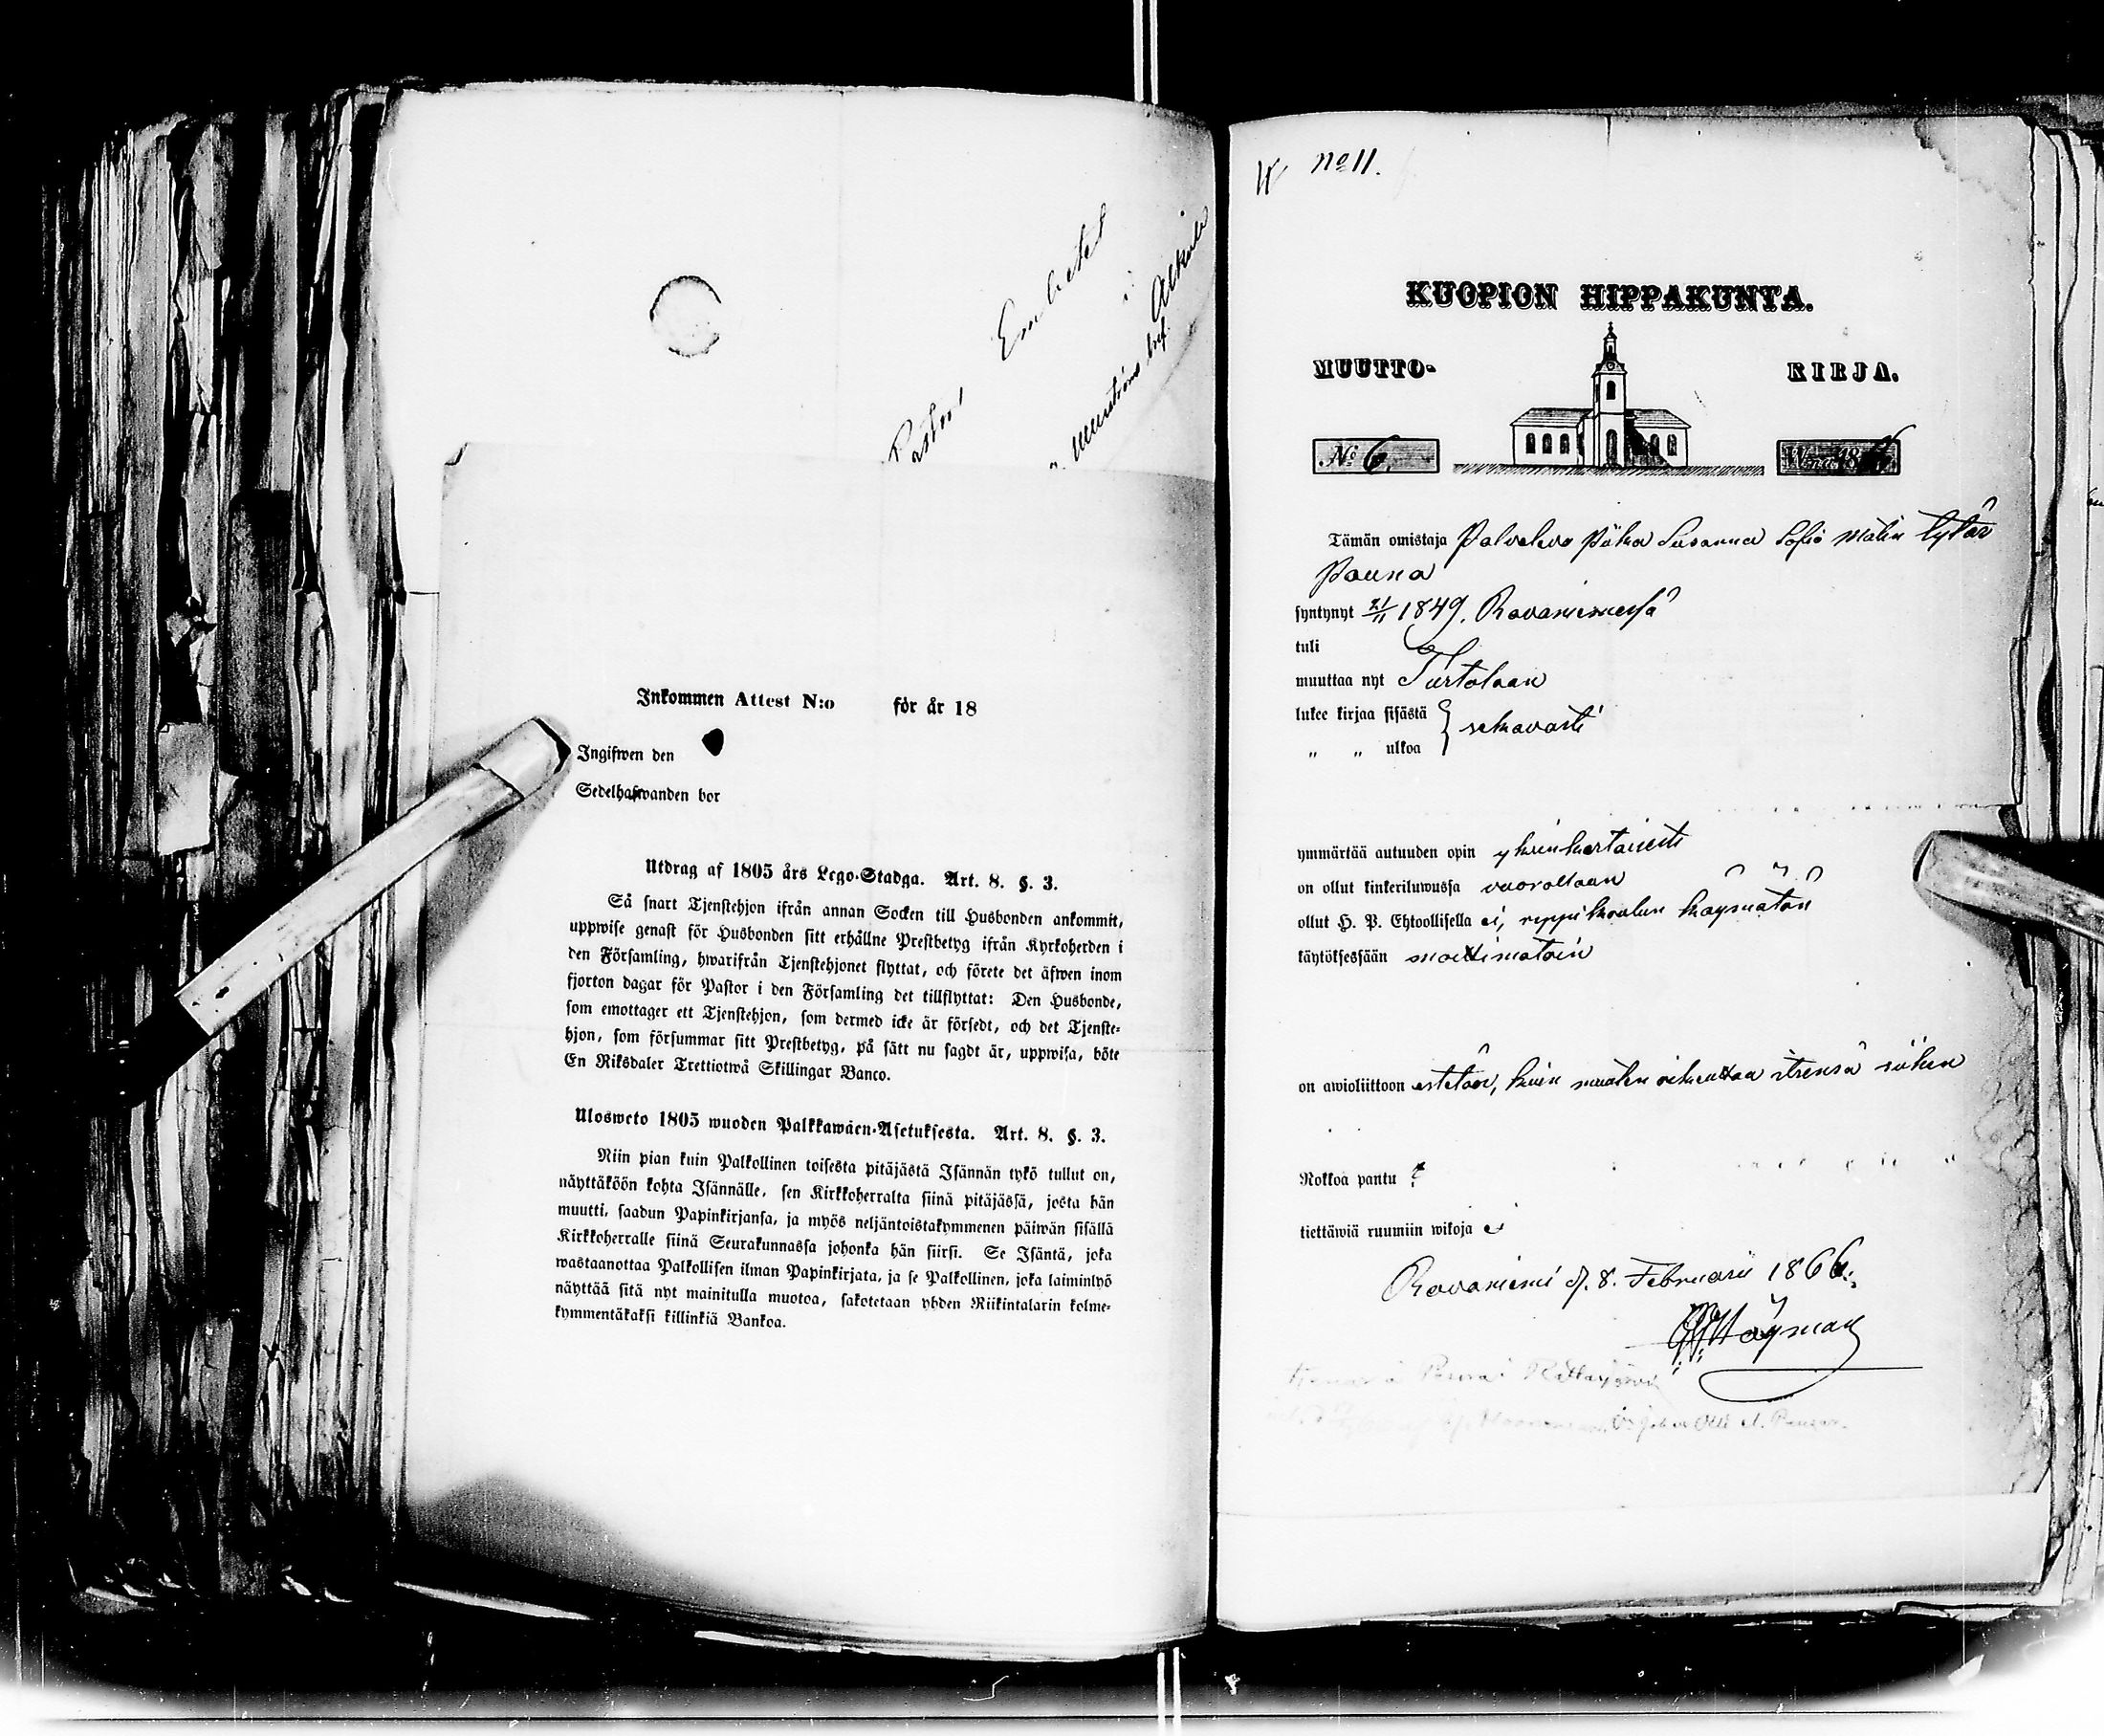 Pastors Embetet
i Alkula
Inkommen Attest N:o för år 18
Ingifwen den
Sedelhafwanden bor
Utdrag af 1805 års Lego-Stadga. Art. 8. §. 3.
Så snart Tjenstehjon ifrån annan Socken till Husbonden ankommit,
uppwise genast för Husbonden sitt erhållne Prestbetyg ifrån Kyrkoherden i
den Församling, hwarifrån Tjenstehjonet flyttat, och förete det äfwen inom
fjorton dagar för Pastor i den Församling det tillflyttat: Den Husbonde,
som emottager ett Tjenstehjon, som dermed icke är försedt, och det Tjenste-
hjon, som försummar sitt Prestbetyg, på sätt nu sagdt är, uppwisa, böte
En Riksdaler Trettiotwå Skillingar Banco.
Ulosweto 1805 wuoden Palkkawäen-Asetuksesta. Art. 8. §. 3.
Niin pian kuin Palkollinen toisesta pitäjästä Isännän tykö tullut on,
näyttäköön kohta Isännälle, sen Kirkkoherralta siinä pitäjässä, josta hän
muutti, saadun Papinkirjansa, ja myös neljäntoistakymmenen päiwän sisällä
Kirkkoherralle siinä Seurakunnassa johonka hän siirsi. Se Isäntä, joka
wastaanottaa Palkollisen ilman Papinkirjata, ja se Palkollinen, joka laiminlyö
näyttää sitä nyt mainitulla muotoa, sakotetaan yhden Riikintalarin kolme-
kymmentäkaksi killinkiä Bankoa.
No 11.
KUOPION HIPPAKUNTA.
MUUTTO- KIRJA.
No 6. W:na 1866
Tämän omistaja Palvelus Piika Susanna Sofia Matin tytär
Pauna
syntynyt 21/11 1849. Rovaniemessä
tuli
muuttaa nyt Turtolaan
lukee kirjaa sisästä } sekavasti
„ „ ulkoa
ymmärtää autuuden opin yksinkertaisesti
on ollut kinkeriluwussa vuorollaan
ollut H. P. Ehtoollisella ei, rippikoulun käymätön
käytöksessään moittimatoin
on awioliittoon estetön, kuin muuten oikeuttaa itsensä siihen
Rokkoa pantu ?
tiettäwiä ruumiin wikoja ei
Rovaniemi d. 8. Februarii 1866.